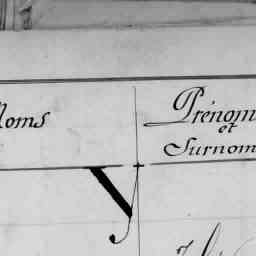 Noms
Prénom
et
Surnom
Y